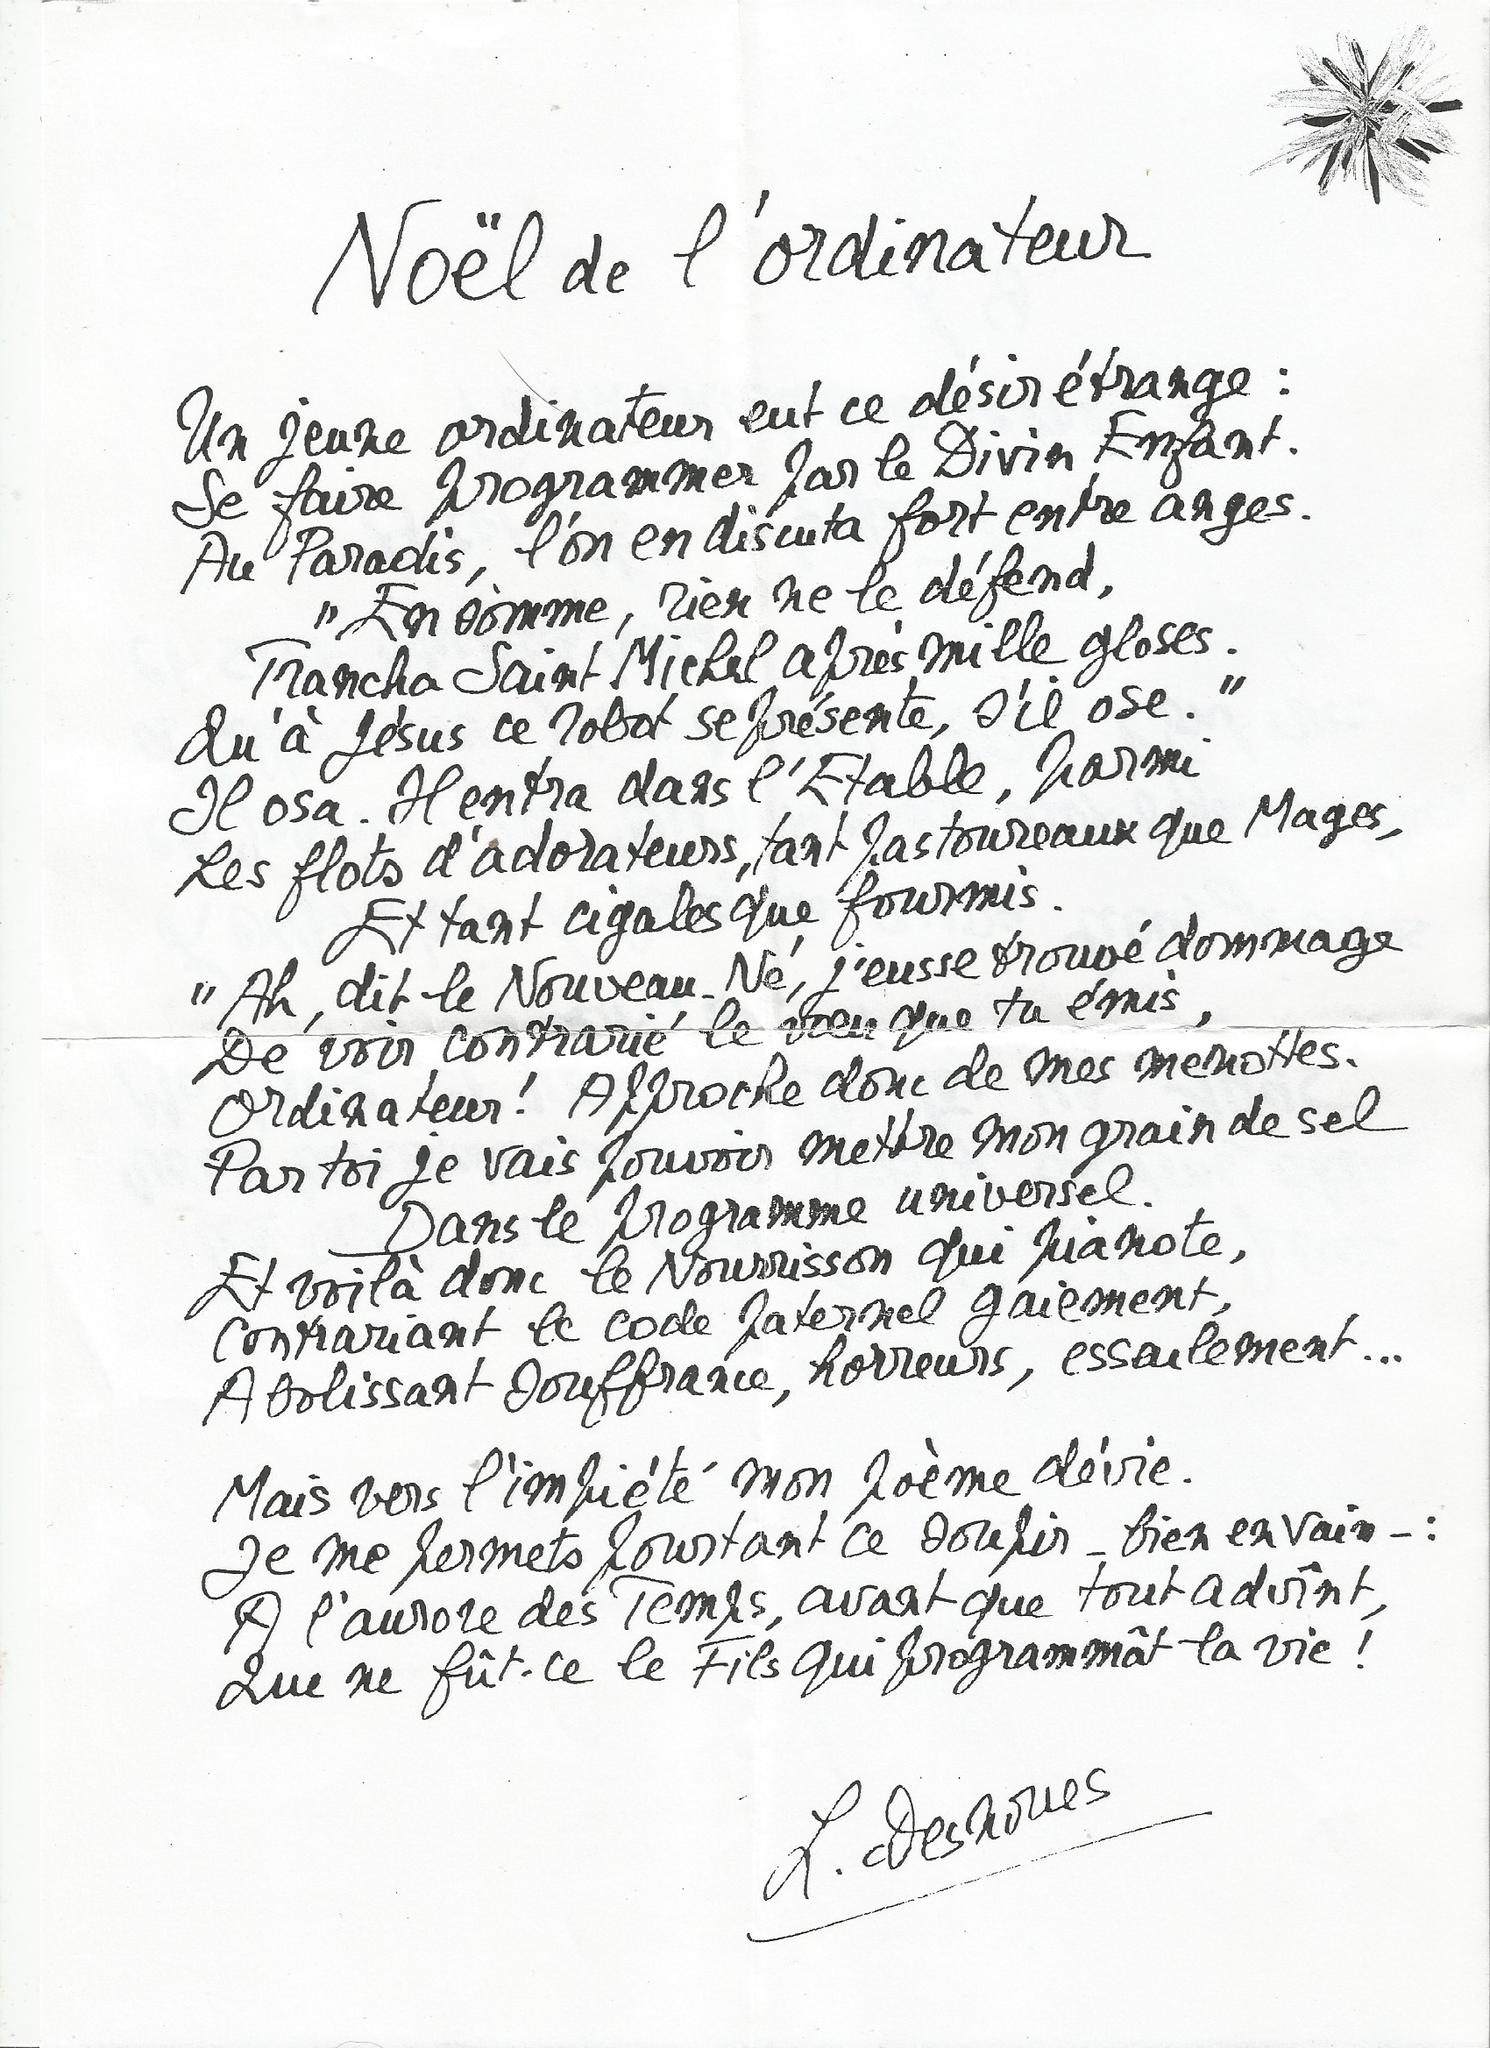 Noël de l'ordinateur
Un jeune ordinateur eut ce désir étrange :
Se faire programmer par le Divin Enfant.
Au Paradis, l'on en discuta fort entre anges.
"En somme, rien ne le défend,
Trancha Saint Michel après mille gloses.
Qu'à Jésus ce robot se présente, s'il ose."
Il osa. Il entra dans l'Etable, parmi
Les flots d'adorateurs, tant pastoureaux que Mages,
Et tant cigales que fourmis.
"Ah, dit le Nouveau-Né, j'eusse trouvé dommage
De voir contrarié le voeu que tu émis,
Ordinateur ! Approche donc de mes menottes.
Par toi je vais pouvoir mettre mon grain de sel
Dans le programme universel.
Et voilà donc le Nourrisson qui pianote,
Contrariant le code paternel gaiement,
Abolissant souffrance, horreurs, esseulement...
Mais vers l'impiété mon poème dévie.
Je me permets pourtant ce soupir - bien en vain - :
A l'aurore des Temps, avant que tout advînt,
Que ne fût-ce le Fils qui programmât la vie !
L. Desnoues